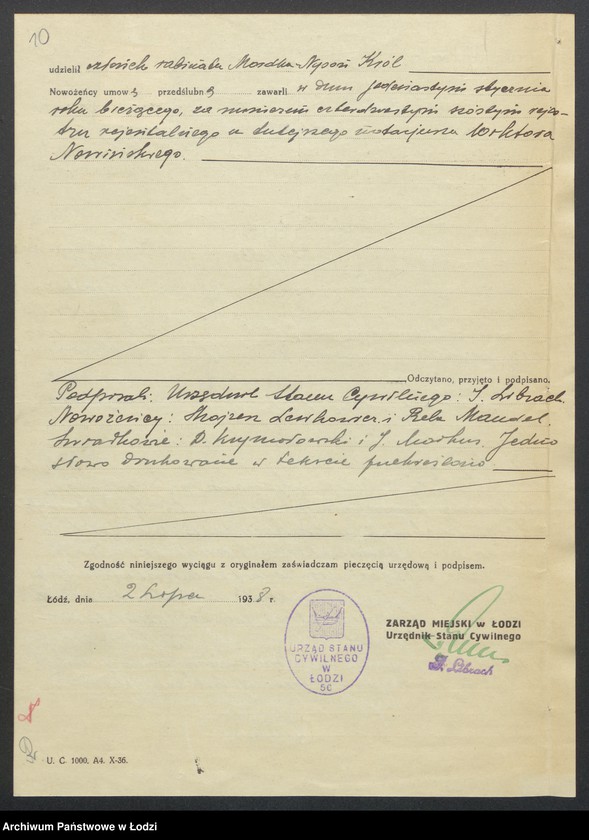 10
udzielił członek rabinatu Mordka-Nyson Król
Nowożeńcy umowę przedślubną zawarli w dniu jedenastym stycznia
roku bieżącego, za numerem czterdziestym szóstym reper-
torium rejentalnego u tutejszego notarjusza Wiktora
Nowińskiego.
Odczytano, przyjęto i podpisano.
Podpisali: Urzędnik Stanu Cywilnego: I. Librach.
Nowożeńcy: Mojżesz Lewkowicz i Rela Mandel.
Świadkowie: D. i J. Markus. Jedno
słowo drukowane w tekście przekreślono
Zgodność niniejszego wyciągu z oryginałem zaświadczam pieczęcią urzędową i podpisem.
Łódź, dnia 2 Lipca 1938 r.
ZARZĄD MIEJSKI w ŁODZI
Urzędnik Stanu Cywilnego
I. Librach
URZĄD STANU
CYWILNEGO
W
ŁODZI
U. C. 1000. A4. X-36.
Archiwum Państwowe w Łodzi